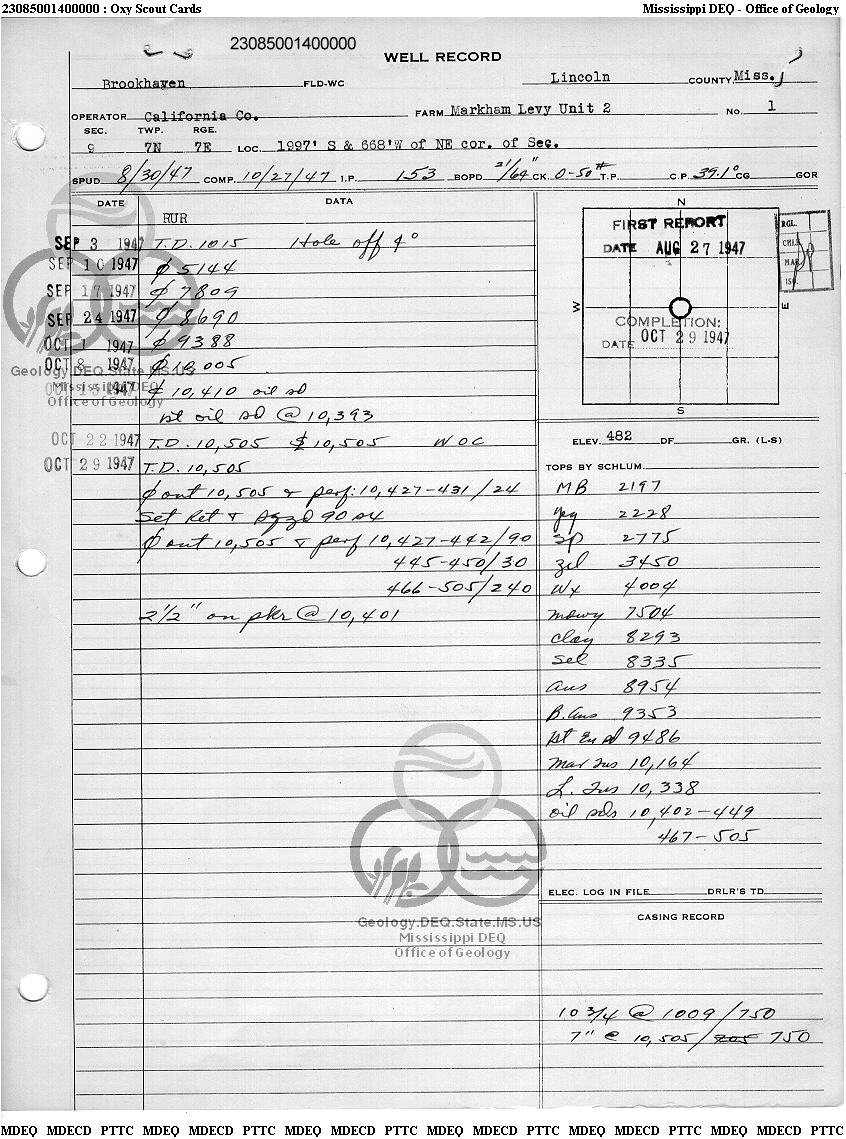 23085001400000 : Oxy Scout Cards Mississippi DEQ - Office of Geology
23085001400000
WELL RECORD
Brookhaven FLD-WC Lincoln COUNTY Miss.
OPERATOR California Co. FARM Markham Levy Unit 2 No. 1
SEC. TWP. RGE.
9 7N 7E LOC. 1997' S & 668'W of NE cor. of Sec.
SPUD 8/30/47 COMP. 10/27/47 I.P. 153 BOPD 21/64" CK. 0-50# T.P. C.P. 39.1° CG GOR
DATE DATA
RUR
SEP 3 1947 T.D. 1015 Hole off 4°
SEP 10 1947 ⌀ 5144
SEP 17 1947 ⌀ 7809
SEP 24 1947 ⌀ 8690
OCT 1 1947 ⌀ 9388
OCT 8 1947 ⌀ 10,005
OCT 15 1947 ⌀ 10,410 oil sd
1st oil sd @ 10,393
OCT 22 1947 T.D. 10,505 $ 10,505 WOC
OCT 29 1947 T.D. 10,505
⌀ out 10,505 & perf: 10,427-431/24
Set Ret & Sqzd 90 sx
⌀ out 10,505 & perf 10,427-442/90
445-450/30
466-505/240
2 1/2" on pkr @ 10,401
N
W
E
S
FIRST REPORT
DATE AUG 27 1947
COMPLETION:
DATE OCT 29 1947
RGL.
CHL.
MAR.
ISO.
ELEV. 482 DF. GR. (L-S)
TOPS BY SCHLUM.
MB 2197
Yeg 2228
Sp 2775
Zil 3450
Wx 4004
Mdwy 7504
Clay 8293
Sel 8335
Aus 8954
B. Aus 9353
1st Eu sd 9486
Mar Tus 10,164
L. Tus 10,338
oil sds 10,402-449
467-505
ELEC. LOG IN FILE DRLR'S TD
CASING RECORD
10 3/4 @ 1009/750
7" @ 10,505/ 750
Geology.DEQ.State.MS.US
Mississippi DEQ
Office of Geology
Geology.DEQ.State.MS.US
Mississippi DEQ
Office of Geology
MDEQ MDECD PTTC MDEQ MDECD PTTC MDEQ MDECD PTTC MDEQ MDECD PTTC MDEQ MDECD PTTC